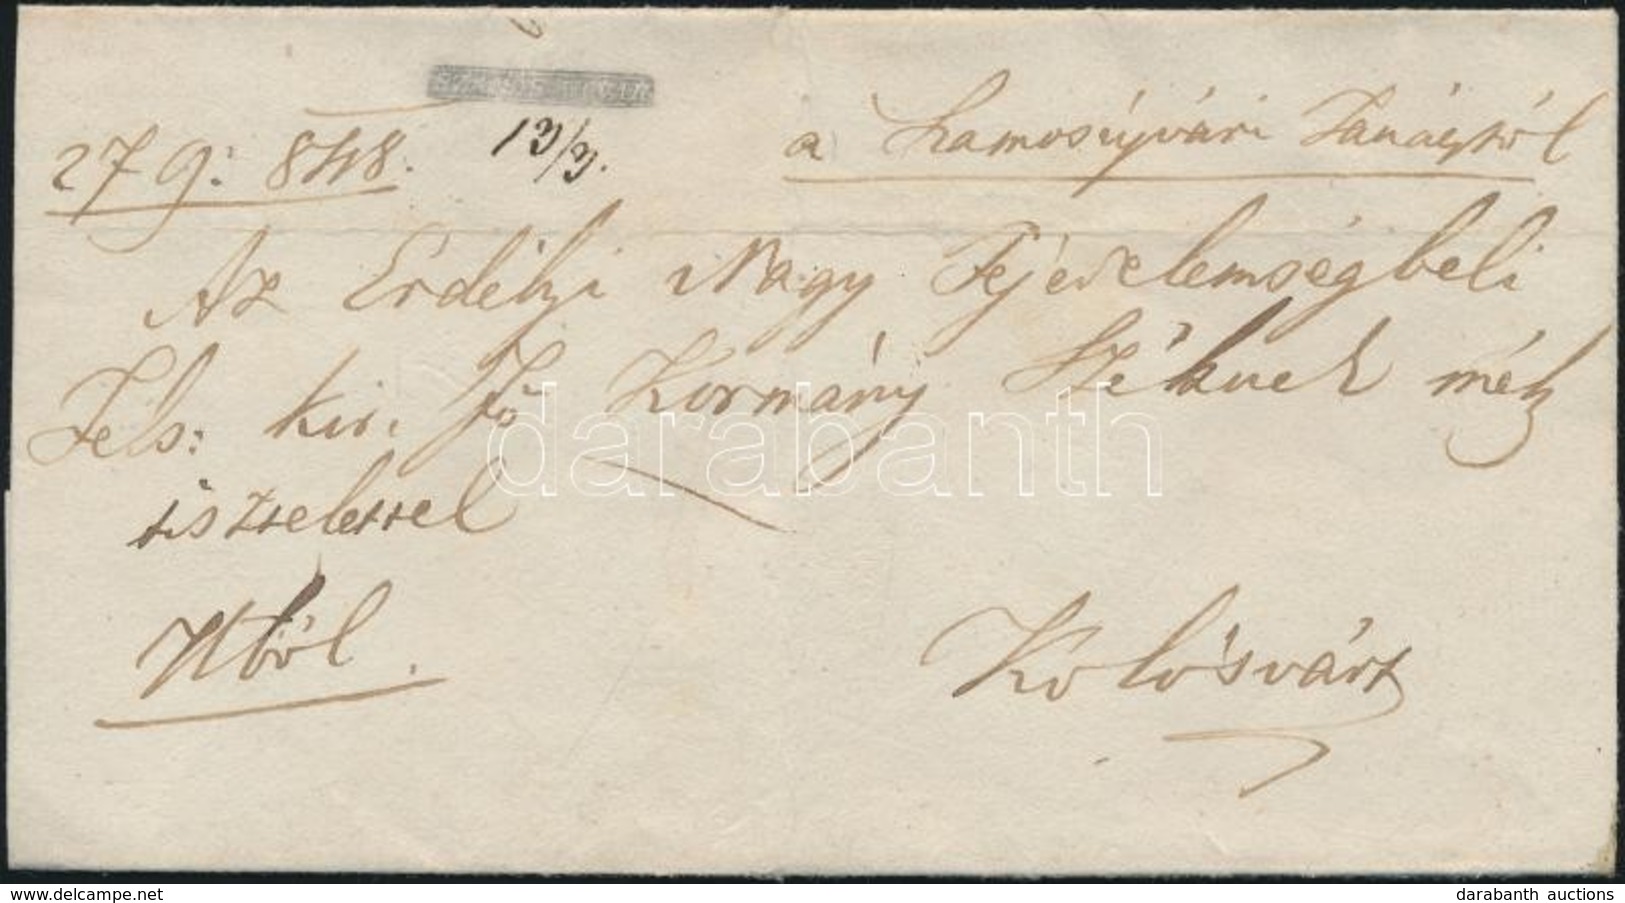 27 9: 848.
13/9.
a Szamosújvári Tanácstól
Az Erdélyi Nagy Fejedelemségbeli
Fels: kir. Fő Kormány Széknek mély
tisztelettel
Kolósvárt
darabanth
delcampe.net
darabanth auctions